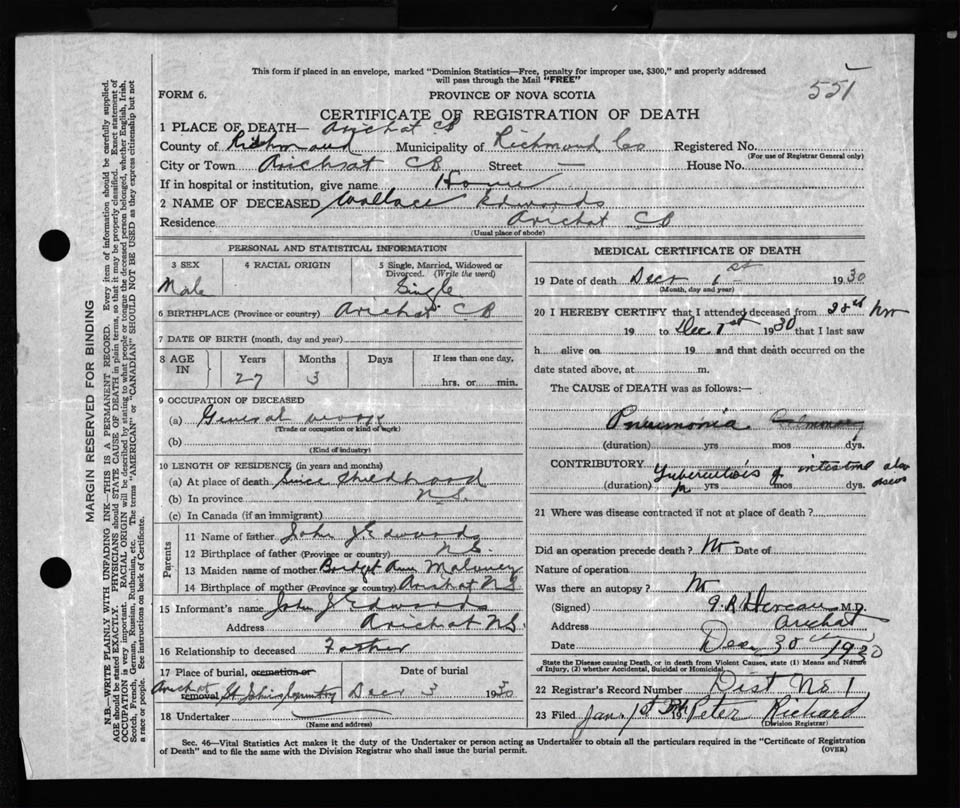 This form if placed in an envelope, marked "Dominion Statistics—Free, penalty for improper use, $300," and properly addressed
will pass through the Mail "FREE"
551
FORM 6.
PROVINCE OF NOVA SCOTIA
CERTIFICATE OF REGISTRATION OF DEATH
1 PLACE OF DEATH— Arichat CB
County of Richmond Municipality of Richmond Co Registered No.
(For use of Registrar General only)
City or Town Arichat CB Street — House No.
If in hospital or institution, give name Home
2 NAME OF DECEASED Wallace Edwards
Residence Arichat CB
(Usual place of abode)
PERSONAL AND STATISTICAL INFORMATION
3 SEX 4 RACIAL ORIGIN 5 Single, Married, Widowed or
Divorced. (Write the word)
Male Single
6 BIRTHPLACE (Province or country) Arichat CB
7 DATE OF BIRTH (month, day and year)
8 AGE IN Years Months Days If less than one day,
27 3 hrs. or min.
9 OCCUPATION OF DECEASED
(a) General work
(Trade or occupation or kind of work)
(b)
(Kind of industry)
10 LENGTH OF RESIDENCE (in years and months)
(a) At place of death Since Childhood
(b) In province N.S.
(c) In Canada (if an immigrant)
Parents
11 Name of father John J Edwards
12 Birthplace of father (Province or country) N.S.
13 Maiden name of mother Bridget Ann Maloney
14 Birthplace of mother (Province or country) Arichat N.S
15 Informant's name John J Edwards
Address Arichat N.S.
16 Relationship to deceased Father
17 Place of burial, cremation or Date of burial
removal Arichat St Johns Dec 3 1930
18 Undertaker
(Name and address)
MEDICAL CERTIFICATE OF DEATH
19 Date of death Dec 1st 1930
(Month, day and year)
20 I HEREBY CERTIFY that I attended deceased from 28th Nov
19 to Dec 1st 1930 that I last saw
h alive on 19 and that death occurred on the
date stated above, at m.
The CAUSE of DEATH was as follows:—
Pneumonia
(duration) yrs mos dys.
CONTRIBUTORY Tuberculosis of intestine also
(duration) yrs mos dys.
21 Where was disease contracted if not at place of death?
Did an operation precede death? No Date of
Nature of operation
Was there an autopsy? No
(Signed) M.D.
Address Arichat
Date Dec 30th 1930
State the Disease causing Death, or in death from Violent Causes, state (1) Means and Nature
of Injury, (2) whether Accidental, Suicidal or Homicidal.
22 Registrar's Record Number Dist No 1
23 Filed Jan. 1st Peter Richard
(Division Registrar)
Sec. 46—Vital Statistics Act makes it the duty of the Undertaker or person acting as Undertaker to obtain all the particulars required in the "Certificate of Registration
of Death" and to file the same with the Division Registrar who shall issue the burial permit.
(OVER)
MARGIN RESERVED FOR BINDING
N.B.—WRITE PLAINLY WITH UNFADING INK—THIS IS A PERMANENT RECORD. Every item of information should be carefully supplied.
AGE should be stated EXACTLY. PHYSICIANS should STATE CAUSE OF DEATH in plain terms, so that it may be properly classified. Exact statement of
OCCUPATION is very important. RACIAL ORIGIN will be described by stating to what people or tongue the deceased person belonged, whether English, Irish,
Scotch, French, German, Russian, Ruthenian, etc. The terms "AMERICAN" or "CANADIAN" SHOULD NOT BE USED as they express citizenship but not
a race or people. See instructions on back of Certificate.